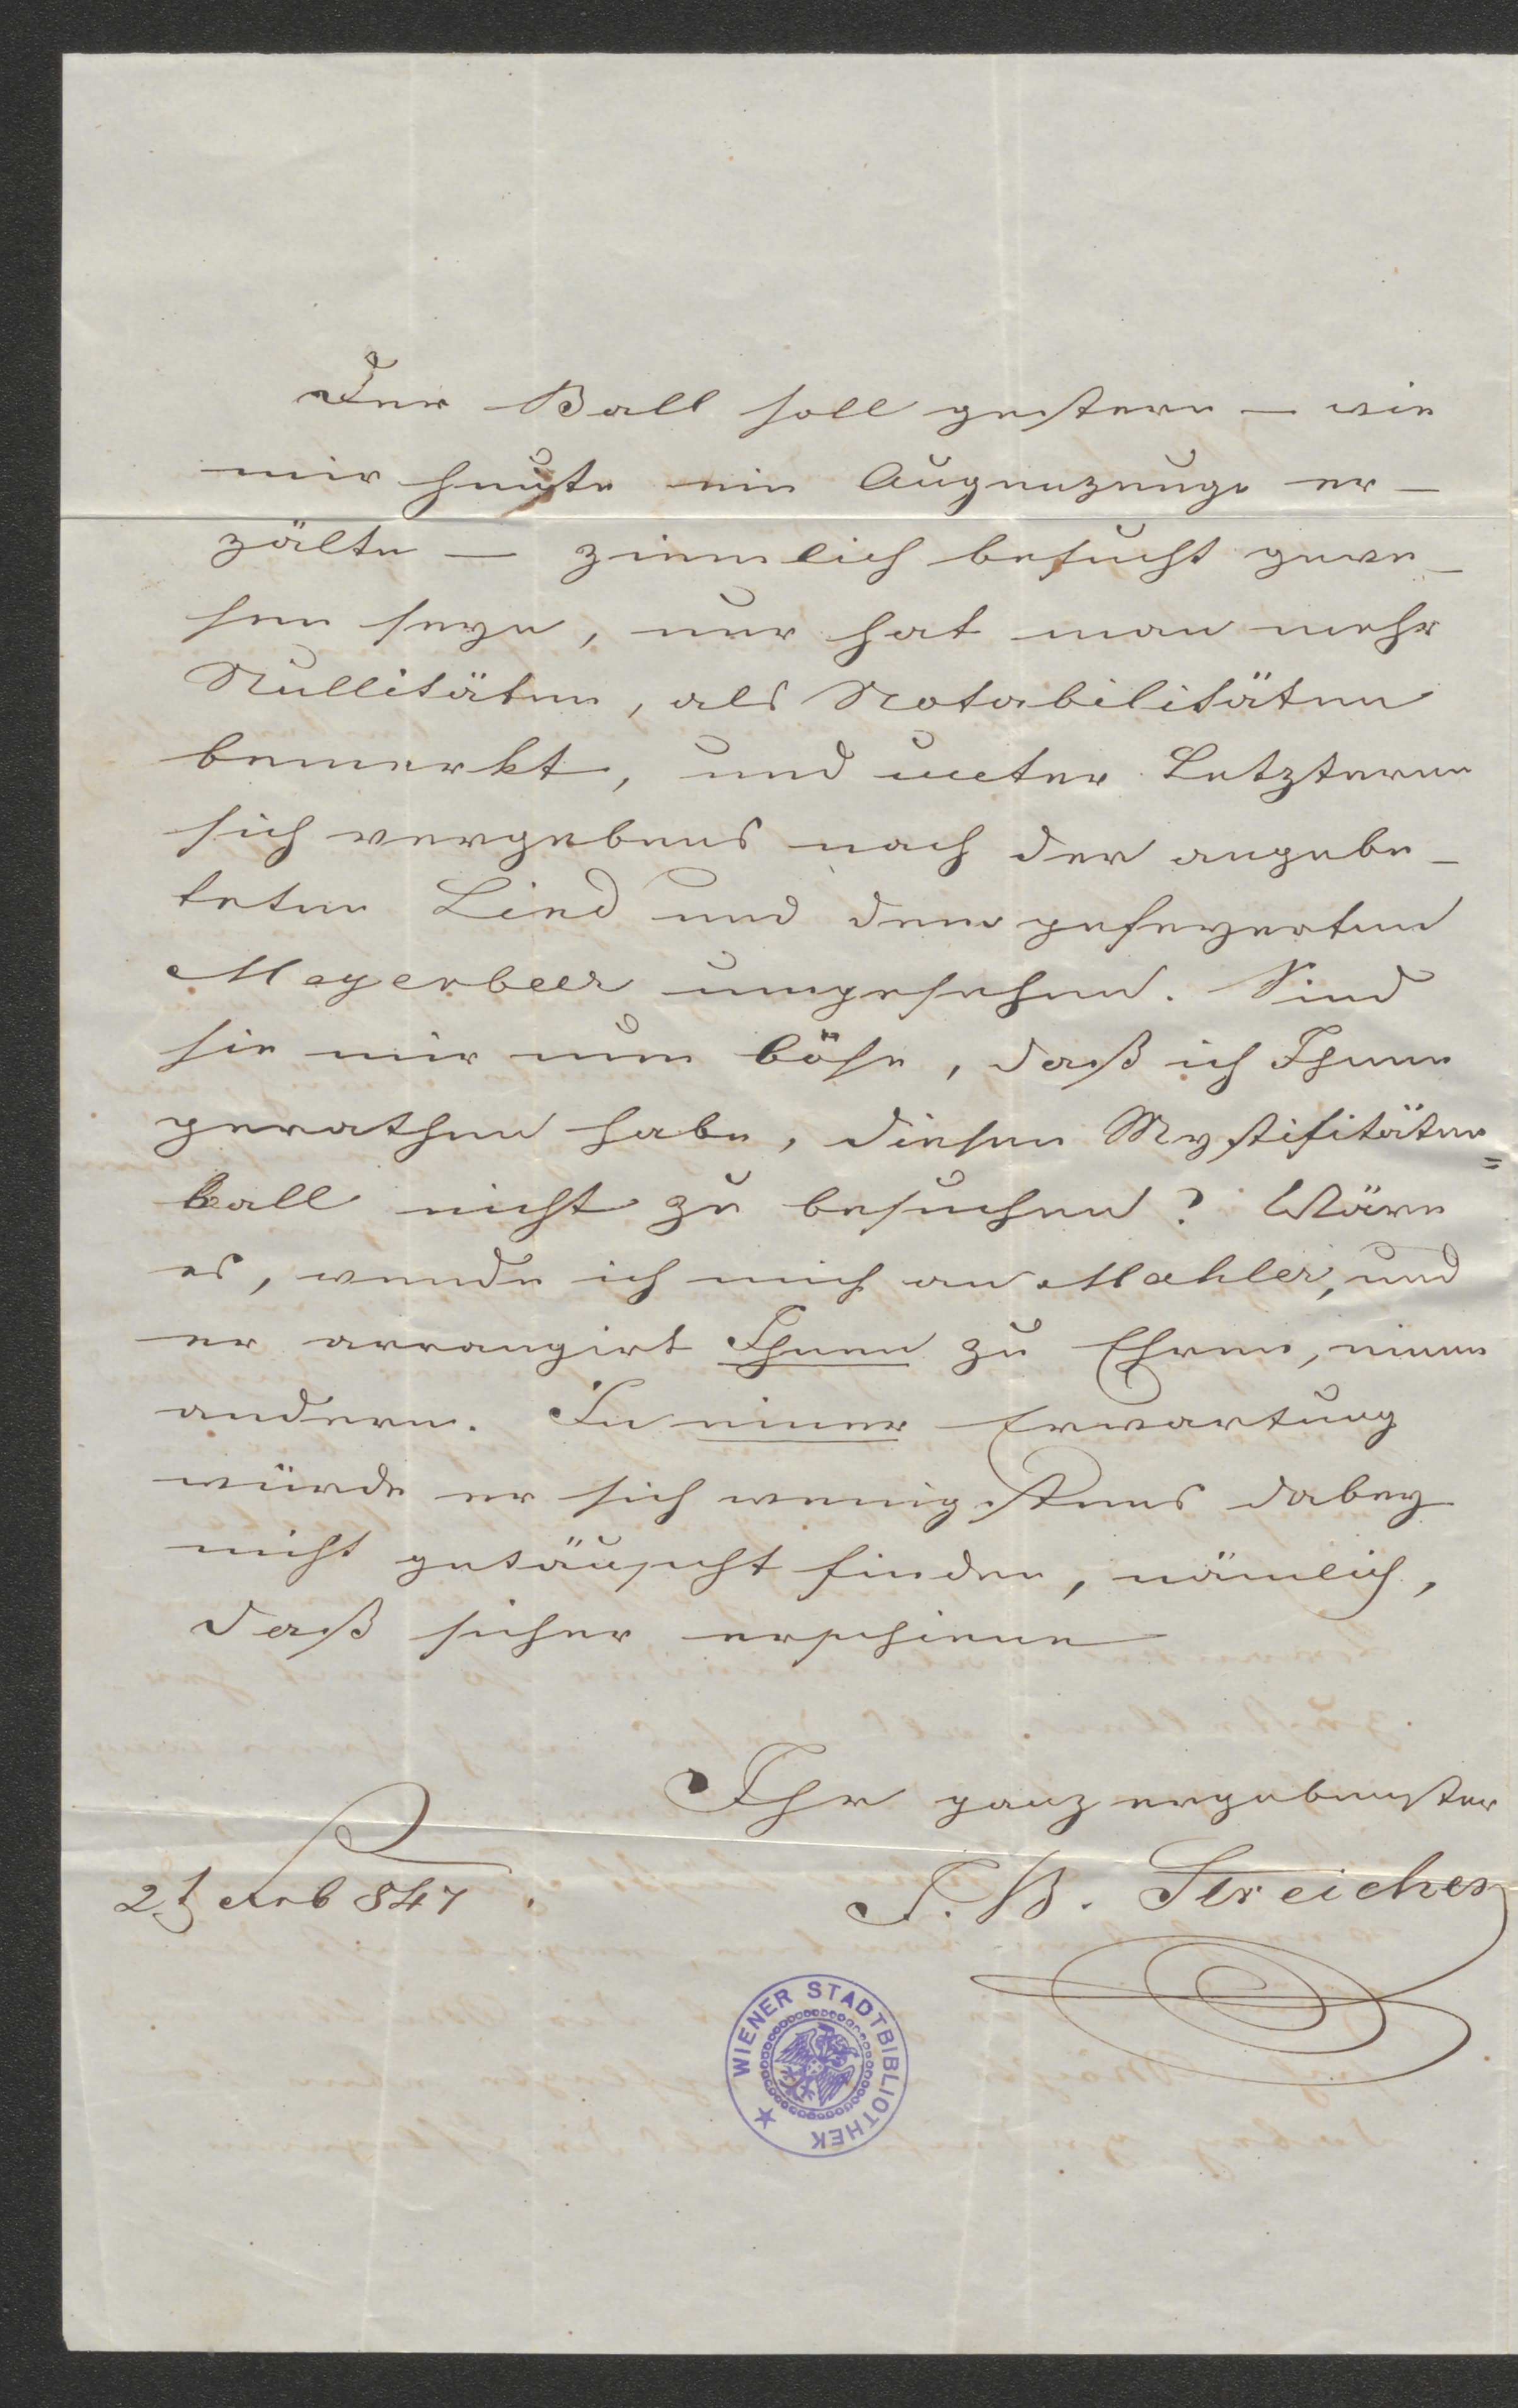 Der Ball soll gestern – wie
mir heute ein Augenzeuge er-
zälte – ziemlich besucht gewe-
sen seyn, nur hat man mehr
Nullitäten, als Notabilitäten
bemerkt, und unter Letzteren
sich vergebens nach der angebe-
teten Lind und dem gefeyerten
Meyerbeer umgesehen. Sind
sie mir nun böse, daß ich Ihnen
gerathen habe, diesen Mystifitäten=
ball nicht zu besuchen? Wäre
es, wende ich mich an Mahler, und
er arrangirt Ihnen zu Ehren, einen
andern. In einer Erwartung
würde er sich wenigstens dabey
nicht getäuscht finden, nämlich,
daß sicher erschiene
Ihr ganz ergebenster
J. B. Streicher
2t Feb 847.
WIENER STADTBIBLIOTHEK